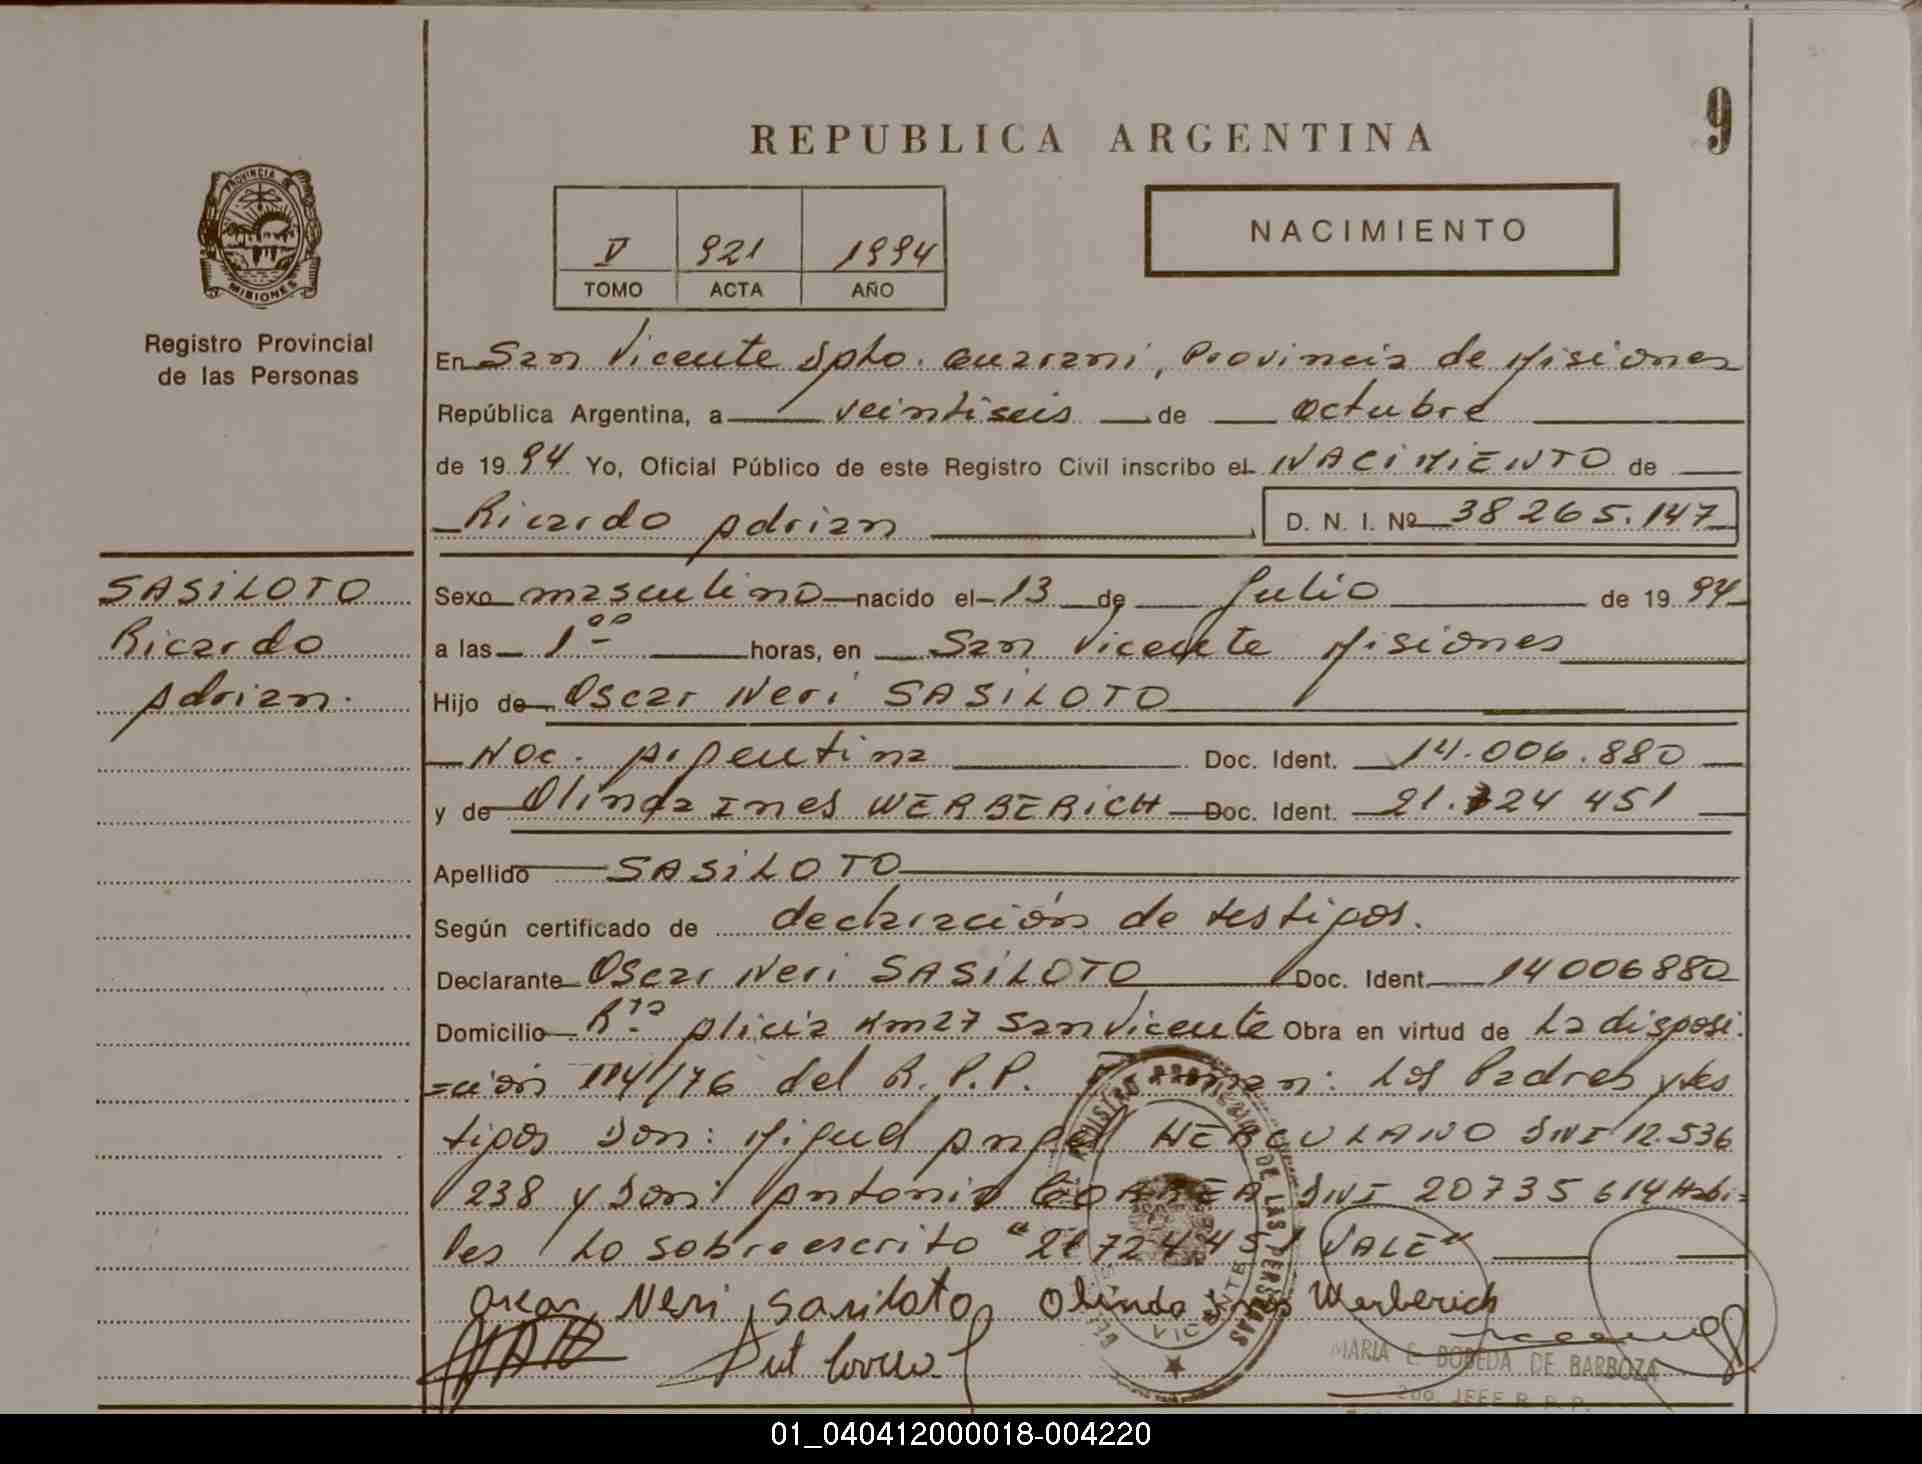 9
REPUBLICA ARGENTINA
PROVINCIA DE MISIONES
NACIMIENTO
V 921 1994
TOMO ACTA AÑO
Registro Provincial
de las Personas
En San Vicente Dpto. Guarani, Provincia de Misiones
República Argentina, a veintiseis de octubre
de 1994 Yo, Oficial Público de este Registro Civil inscribo el NACIMIENTO de
Ricardo Adrian D. N. I. Nº 38265.147
SASILOTO
Ricardo
Adrian.
Sexo masculino nacido el 13 de Julio de 1994
a las 1⁰⁰ horas, en San Vicente Misiones
Hijo de Oscar Neri SASILOTO
Nac. Argentina Doc. Ident. 14.006.880
y de Olinda Ines WERBERICH Doc. Ident. 21.724 451
Apellido SASILOTO
Según certificado de declaración de testigos.
Declarante Oscar Neri SASILOTO Doc. Ident. 14006880
Domicilio Rta Alicia Km27 San Vicente Obra en virtud de La disposi-
=ción 114/76 del R.P.P. Firman: Los Padres y tes
tigos Don: Miguel Angel HERCULANO DNI 12.536
238 y Don: Antonio CORREA DNI 20735614 Habi=
les Lo sobreescrito "21724451 VALE"
Oscar Neri Sasiloto Olinda Ines Werberich
Ant Correa
REGISTRO PROVINCIAL DE LAS PERSONAS
VICENTE
MARIA E. BOBEDA DE BARBOZA
2do. JEFE R.P.P.
01_040412000018-004220